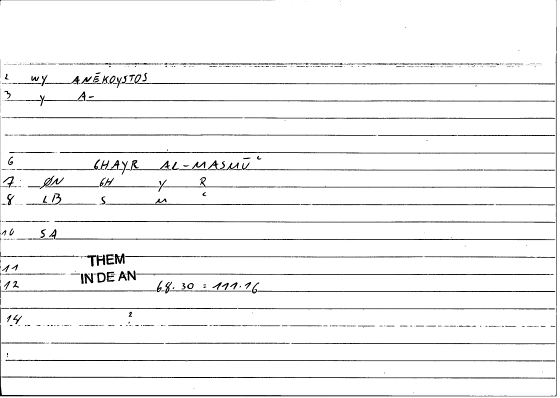 2 wy ANĒKOYSTOS
3 y A-
6 GHAYR AL-MASMŪʿ
7 ØN GH y R
8 LB S M ʿ
10 SA
11 THEM
IN DE AN
12 68.30 = 111.16
14 ?